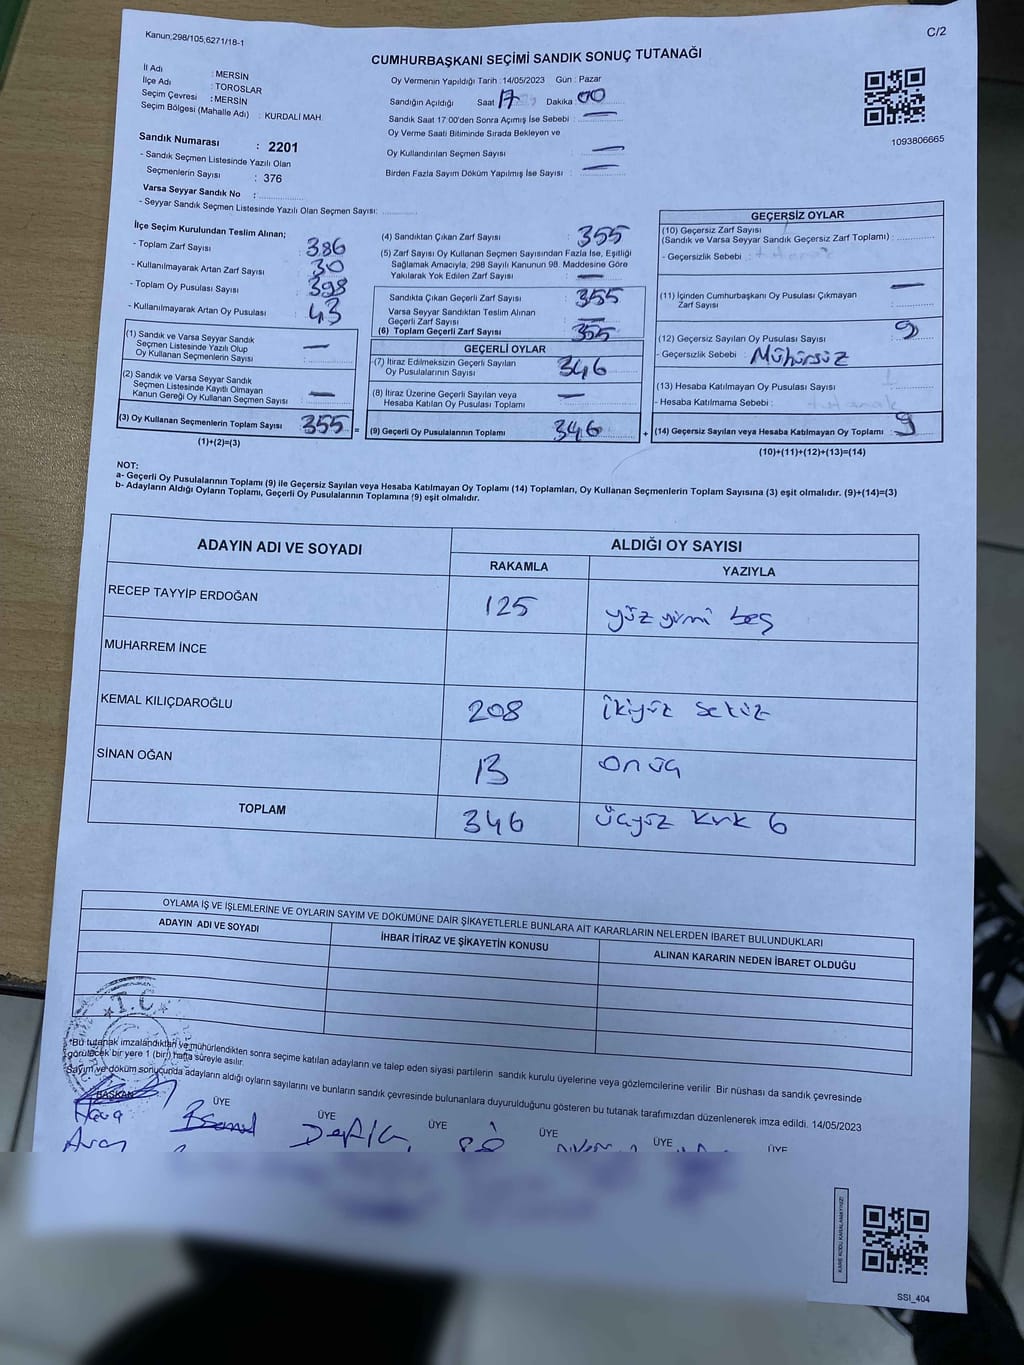 Kanun,298/105,6271/18-1
C/2
CUMHURBAŞKANI SEÇİMİ SANDIK SONUÇ TUTANAĞI
İl Adı : MERSİN
İlçe Adı : TOROSLAR
Seçim Çevresi : MERSİN
Seçim Bölgesi (Mahalle Adı) : KURDALİ MAH.
Sandık Numarası : 2201
- Sandık Seçmen Listesinde Yazılı Olan
Seçmenlerin Sayısı : 376
Varsa Seyyar Sandık No :
- Seyyar Sandık Seçmen Listesinde Yazılı Olan Seçmen Sayısı:
Oy Vermenin Yapıldığı Tarih : 14/05/2023 Gün : Pazar
Sandığın Açıldığı Saat 17 Dakika 00
Sandık Saat 17:00'den Sonra Açımış İse Sebebi : —
Oy Verme Saati Bitiminde Sırada Bekleyen ve
Oy Kullandırılan Seçmen Sayısı : —
Birden Fazla Sayım Döküm Yapılmış İse Sayısı : —
1093806665
İlçe Seçim Kurulundan Teslim Alınan;
- Toplam Zarf Sayısı : 386
- Kullanılmayarak Artan Zarf Sayısı : 30
- Toplam Oy Pusulası Sayısı : 398
- Kullanılmayarak Artan Oy Pusulası : 43
(1) Sandık ve Varsa Seyyar Sandık
Seçmen Listesinde Yazılı Olup
Oy Kullanan Seçmenlerin Sayısı : —
(2) Sandık ve Varsa Seyyar Sandık
Seçmen Listesinde Kayıtlı Olmayan
Kanun Gereği Oy Kullanan Seçmen Sayısı : —
(3) Oy Kullanan Seçmenlerin Toplam Sayısı : 355 =
(1)+(2)=(3)
(4) Sandıktan Çıkan Zarf Sayısı : 355
(5) Zarf Sayısı Oy Kullanan Seçmen Sayısından Fazla İse, Eşitliği
Sağlamak Amacıyla, 298 Sayılı Kanunun 98. Maddesine Göre
Yakılarak Yok Edilen Zarf Sayısı : —
Sandıkta Çıkan Geçerli Zarf Sayısı : 355
Varsa Seyyar Sandıktan Teslim Alınan
Geçerli Zarf Sayısı : —
(6) Toplam Geçerli Zarf Sayısı : 355
GEÇERLİ OYLAR
(7) İtiraz Edilmeksizin Geçerli Sayılan
Oy Pusulalarının Sayısı : 346
(8) İtiraz Üzerine Geçerli Sayılan veya
Hesaba Katılan Oy Pusulası Toplamı : —
(9) Geçerli Oy Pusulalarının Toplamı : 346 +
GEÇERSİZ OYLAR
(10) Geçersiz Zarf Sayısı
(Sandık ve Varsa Seyyar Sandık Geçersiz Zarf Toplamı) :
- Geçersizlik Sebebi :
(11) İçinden Cumhurbaşkanı Oy Pusulası Çıkmayan
Zarf Sayısı : —
(12) Geçersiz Sayılan Oy Pusulası Sayısı : 9
- Geçersizlik Sebebi : Mühürsüz
(13) Hesaba Katılmayan Oy Pusulası Sayısı :
- Hesaba Katılmama Sebebi :
(14) Geçersiz Sayılan veya Hesaba Katılmayan Oy Toplamı : 9
(10)+(11)+(12)+(13)=(14)
NOT:
a- Geçerli Oy Pusulalarının Toplamı (9) ile Geçersiz Sayılan veya Hesaba Katılmayan Oy Toplamı (14) Toplamları, Oy Kullanan Seçmenlerin Toplam Sayısına (3) eşit olmalıdır. (9)+(14)=(3)
b- Adayların Aldığı Oyların Toplamı, Geçerli Oy Pusulalarının Toplamına (9) eşit olmalıdır.
ADAYIN ADI VE SOYADI ALDIĞI OY SAYISI
RAKAMLA YAZIYLA
RECEP TAYYİP ERDOĞAN 125 yüz yirmi beş
MUHARREM İNCE
KEMAL KILIÇDAROĞLU 208 İkiyüz sekiz
SİNAN OĞAN 13 on üç
TOPLAM 346 Üçyüz kırk 6
OYLAMA İŞ VE İŞLEMLERİNE VE OYLARIN SAYIM VE DÖKÜMÜNE DAİR ŞİKAYETLERLE BUNLARA AİT KARARLARIN NELERDEN İBARET BULUNDUKLARI
ADAYIN ADI VE SOYADI İHBAR İTİRAZ VE ŞİKAYETİN KONUSU ALINAN KARARIN NEDEN İBARET OLDUĞU
T.C.
*Bu tutanak imzalandıktan ve mühürlendikten sonra seçime katılan adayların ve talep eden siyasi partilerin sandık kurulu üyelerine veya gözlemcilerine verilir. Bir nüshası da sandık çevresinde
görülecek bir yere 1 (bir) hafta süreyle asılır.
Sayım ve döküm sonucunda adayların aldığı oyların sayılarını ve bunların sandık çevresinde bulunanlara duyurulduğunu gösteren bu tutanak tarafımızdan düzenlenerek imza edildi. 14/05/2023
BAŞKAN ÜYE ÜYE ÜYE ÜYE ÜYE ÜYE
KARE KODU KARALAMAYINIZ!
SSI_404